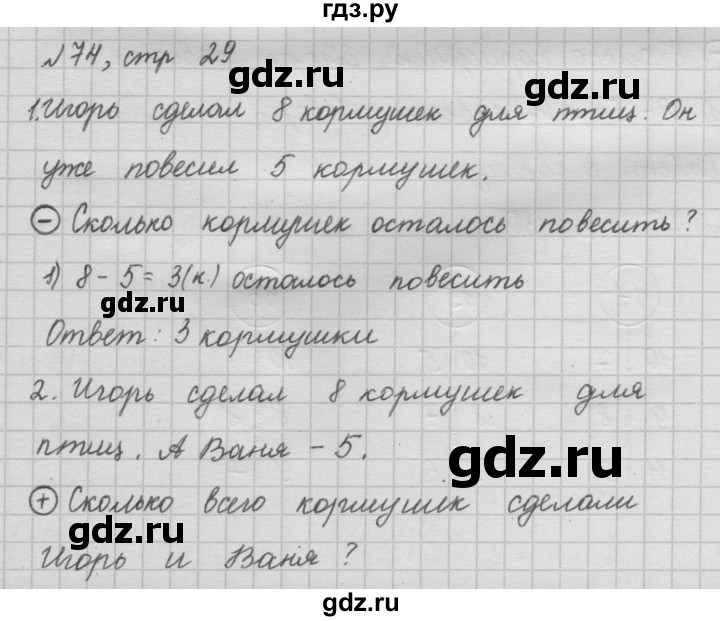 гдз.ру
№74, стр 29
gdz.ru
gdz.ru
1. Игорь сделал 8 кормушек для птиц. Он
уже повесил 5 кормушек.
⊖ Сколько кормушек осталось повесить?
1) 8 - 5 = 3(к.) осталось повесить
gdz.ru
Ответ: 3 кормушки
2. Игорь сделал 8 кормушек для
птиц. А Ваня - 5.
gdz.ru
⊕ Сколько всего кормушек сделали
gdz.ru
Игорь и Ваня?
gdz.ru